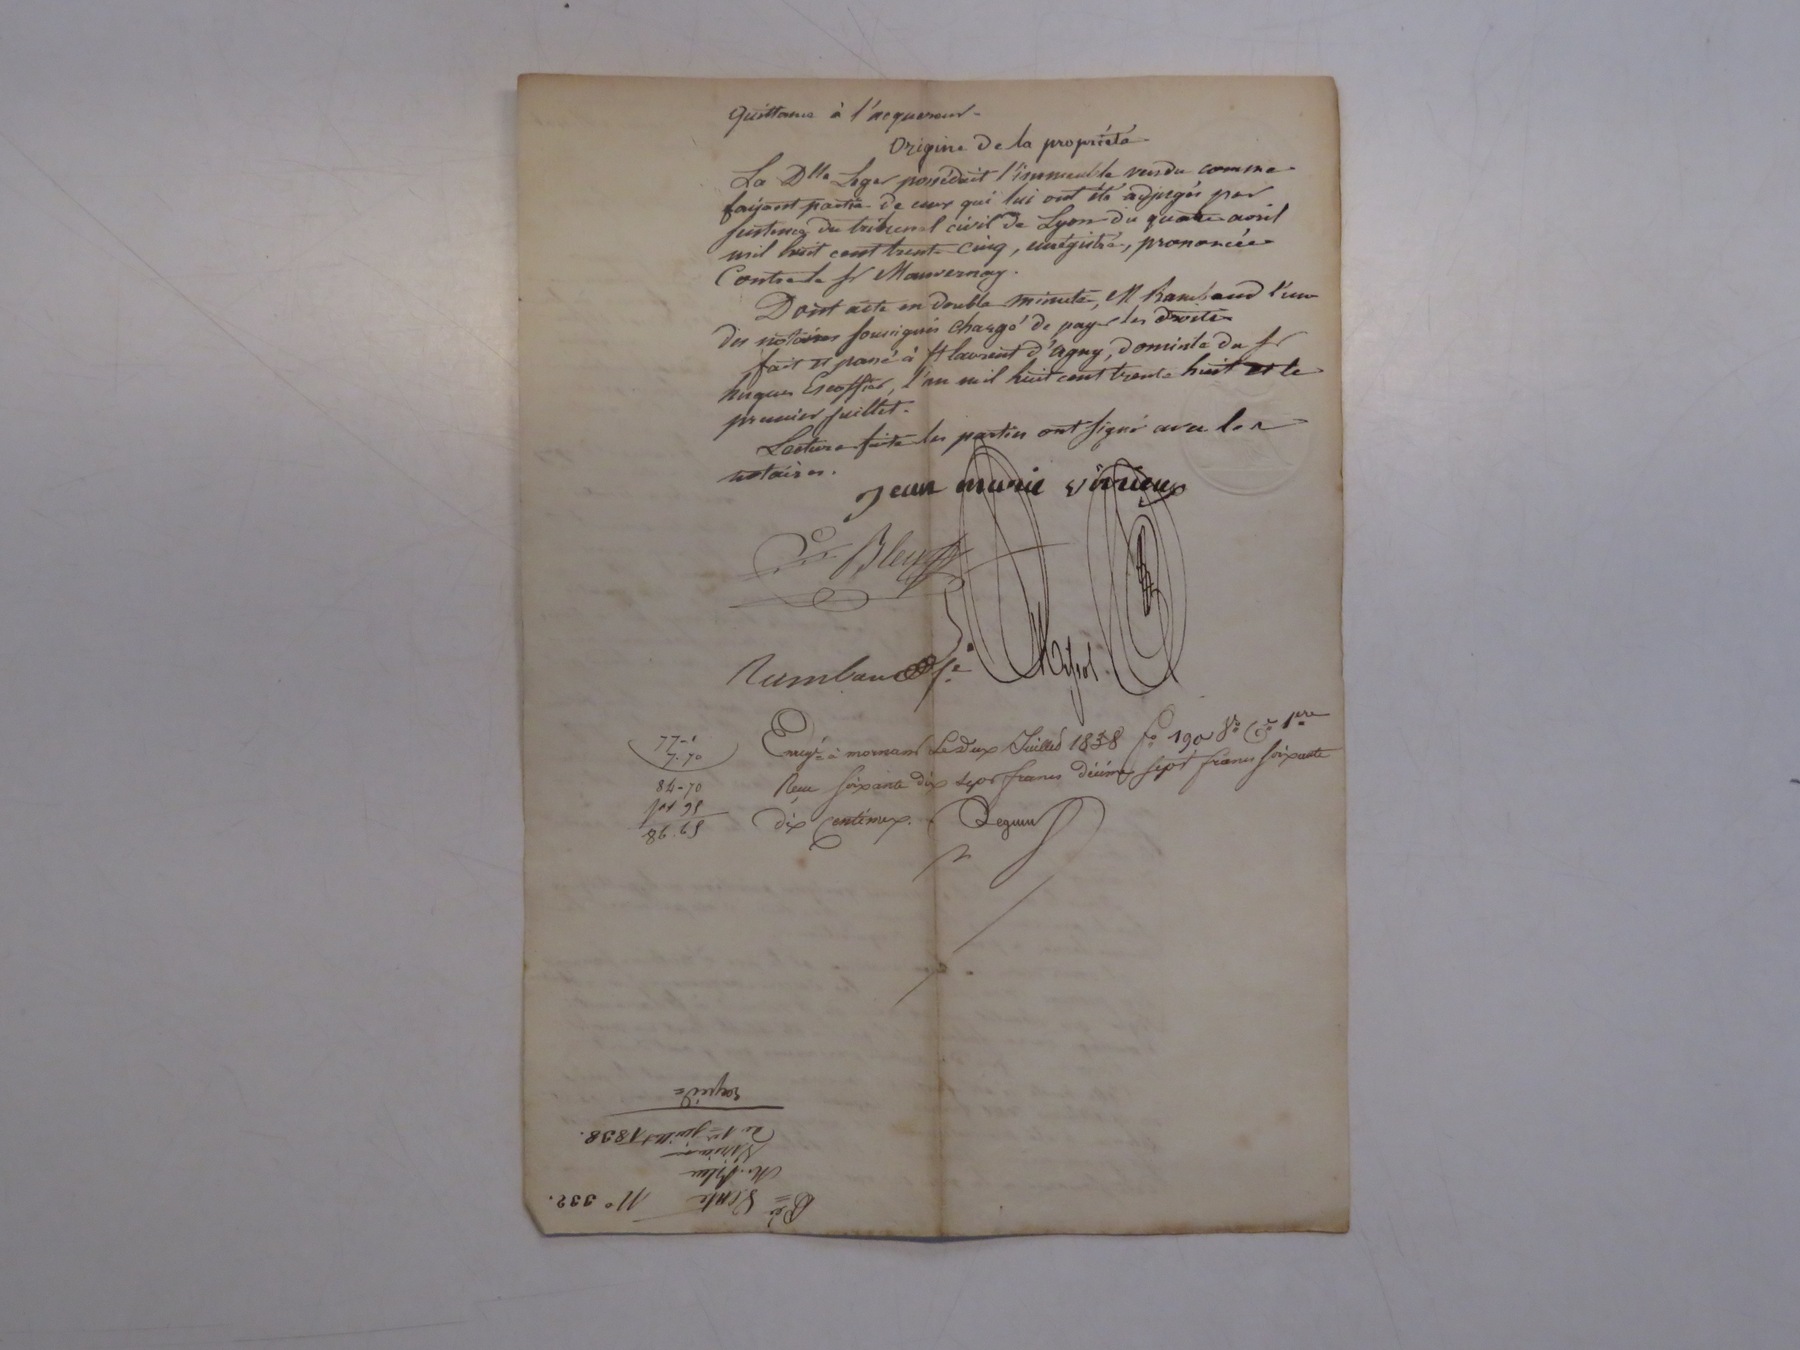 Quittance à l'acquereur.
Origine de la propriété
La Dlle Leger possédait l'immeuble vendu comme
faisant partie de ceux qui lui ont été adjugés par
sentence du tribunal civil de Lyon du quatre avril
mil huit cent trente cinq, enregistré, prononcée
Contre le sr Mauvernay.
Dont acte en double minute, M Rambaud l'un
des notaires soussignés chargé de payer les droits
fait et passé à St laurent d'agny, domicile du sr
hugues Escoffier, l'an mil huit cent trente huit et le
premier juillet.
Lecture faite les parties ont signé avec les
notaires.
Jean marie virieux
Rambaud
77-"
7.70
84-70
86.65
Enregé à mornant Le deux Juillet 1838 fo 190 Vo Ce 1re
Reçu soixante dix sept francs décime sept francs soixante
dix Centimes. Seguin
No 332. Vente
Virieux
Du 1er juillet 1838.